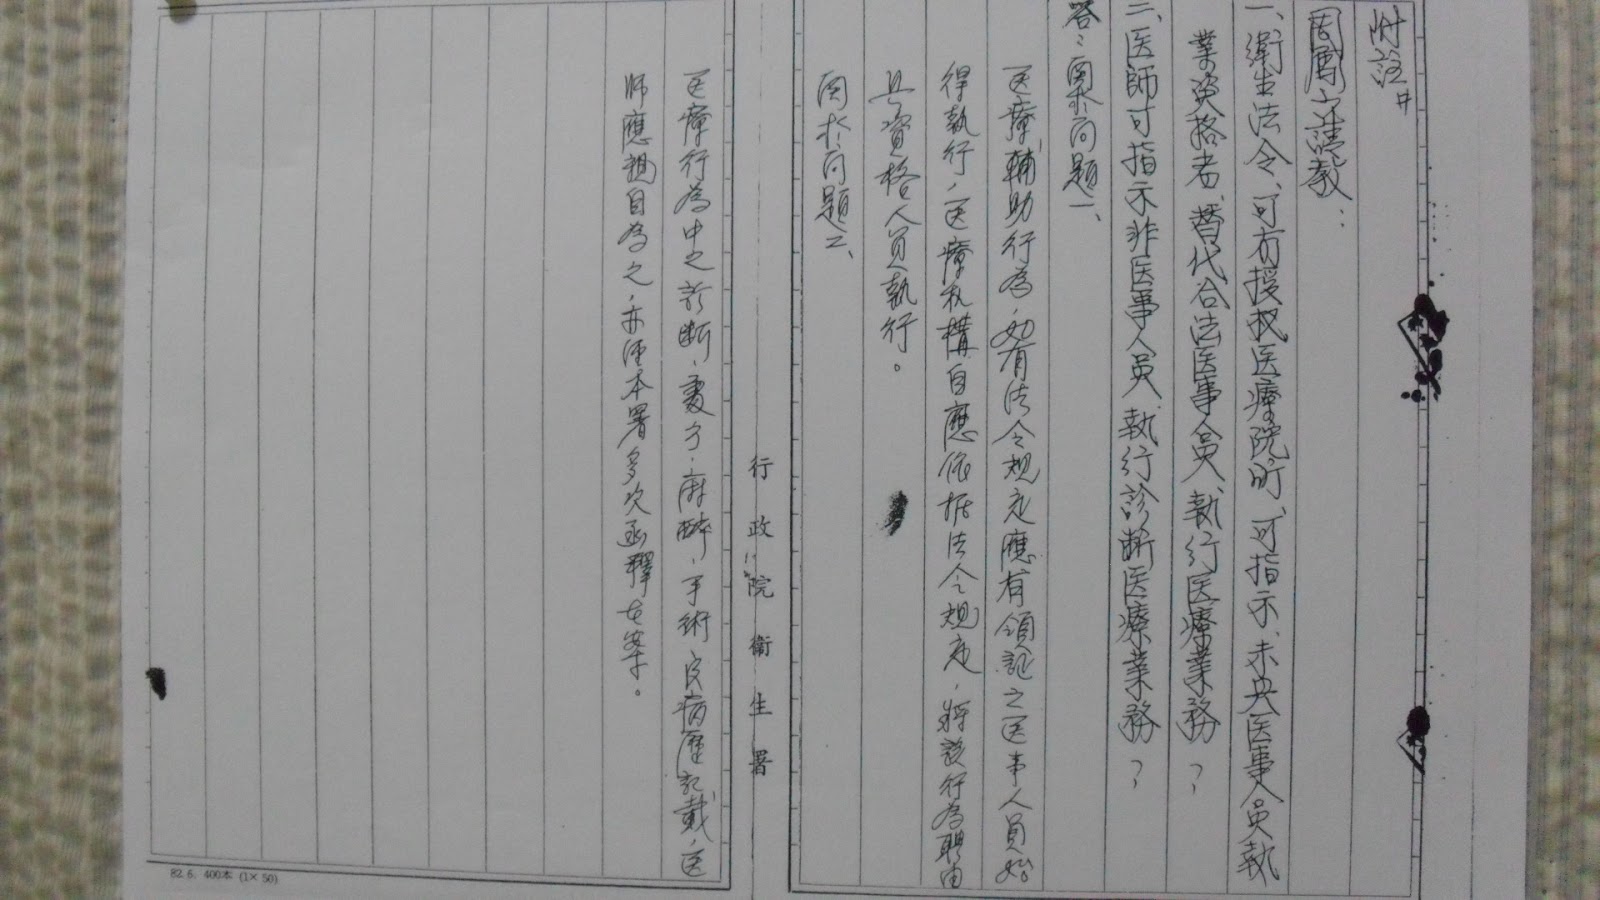 附註#
一、衛生法令、可有授权医療院所、可指示、未具医事人員執
業資格者、替代合法医事人員、執行医療業務?
二、医師可指示非医事人員、執行診断医療業務?
答:関於问题一、
医療輔助行為,如有法令規定應有領証之医事人員始
得執行,医療机構自應依据法令規定,將該行為聘由
具資格人員執行。
関於问题二、
行政院衛生署
医療行為中之診断、處方、麻醉、手術、病歷記載,医
師應親自為之,亦經本署多次函釋在案。
82.6. 400本 (1×50)